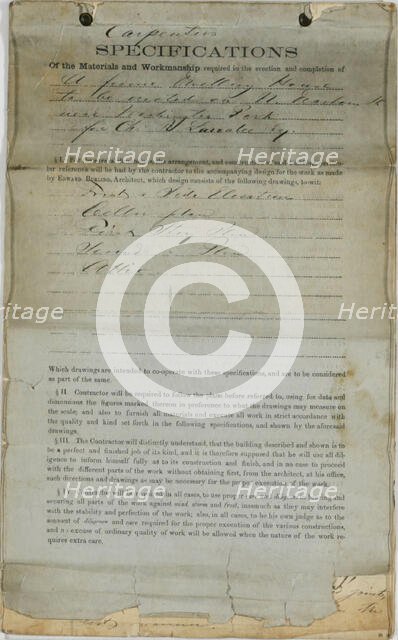 Carpenters
SPECIFICATIONS
Of the Materials and Workmanship required in the erection and completion of
A frame Dwelling House
to be erected on N. Dearborn St
near Washington Park
for Ch. Larrabee Esq.
§ I. arrangement, and
ber reference will be had by the contractor to the accompanying design for the work as made
by EDWARD BURLING, Architect, which design consists of the following drawings, to-wit:
Front & Side Elevation
Cellar plan
First Story Plan
Second " Plan
Attic "
Which drawings are intended to co-operate with these specifications, and are to be considered
as part of the same.
§ II. Contractor will be required to follow the plans before referred to, using for data and
dimensions the figures marked thereon in preference to what the drawings may measure on
the scale; and also to furnish all materials and execute all work in strict accordance with
the quality and kind set forth in the following specifications, and shown by the aforesaid
drawings.
§ III. The Contractor will distinctly understand, that the building described and shown is to
be a perfect and finished job of its kind, and it is therefore supposed that he will use all dil-
igence to inform himself fully as to its construction and finish, and in no case to proceed
with the different parts of the work without obtaining first, from the architect, at his office,
such directions and drawings as may be necessary for the proper execution of the work.
in all cases, to use proper and
securing all parts of the work against wind storm and frost, inasmuch as they may interfere
with the stability and perfection of the work; also, in all cases, to be his own judge as to the
amount of diligence and care required for the proper execution of the various constructions,
and no excuse of ordinary quality of work will be allowed when the nature of the work re-
quires extra care.
joists
the
Heritage Images
Heritage Images
Heritage Images
C
Heritage Images
Heritage Images